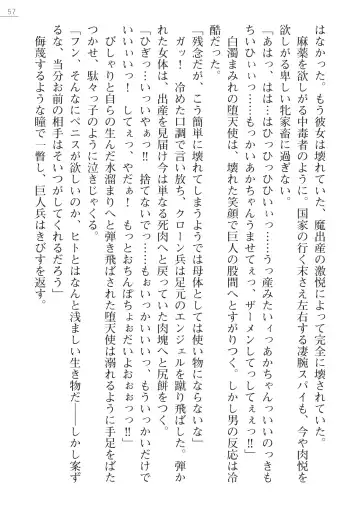 57
はなかった。もう彼女は壊れていた、魔出産の激悦によって完全に壊されていた。
麻薬を欲しがる中毒者のように。国家の行く末さえ左右する凄腕スパイも、今や肉悦を
欲しがる卑しい牝家畜に過ぎない。
「あはっ、はは…はひっひっひひいぃっ…まだ…もっとぉ…まだあかちゃんいいのっきも
ちいひぃぃっ……もっかいあかちゃんうませてぇっ、ザーメンしてってしてぇぇっ‼」
白濁まみれの堕天使は、壊れた笑顔で巨人の股間へとすがりつく。しかし男の反応は冷
酷だった。
「残念だが、こう簡単に壊れてしまうようでは母体としては使い物にならない」
ガッ！　冷めた口調で言い放ち、クローン兵は足元のエンジェルを蹴り飛ばした。弾か
れた女体は、出産を見届け今は単なる死肉へと戻っていた肉塊へと尻餅をつく。
「ひぎっ…いっいやぁっ‼　捨てないでっ……もぉいっかいいいっ、もういっかいだけで
いいぃぃい！　してぇっ、やだぁ！　もっとおちんぽちょぉだいよおぉぉっっ‼」
びしゃりと自らの生んだ水溜まりへと弾き飛ばされた堕天使は溺れるように手足をばた
つかせ、駄々っ子のように泣きじゃくる。
「フン、そんなにペニスが欲しいのか、ヒトとはなんと浅ましい生き物だ――しかし案ず
るな、当分お前の相手はそいつがしてくれるだろう」
侮蔑するような瞳で一瞥し、巨人兵はきびすを返す。